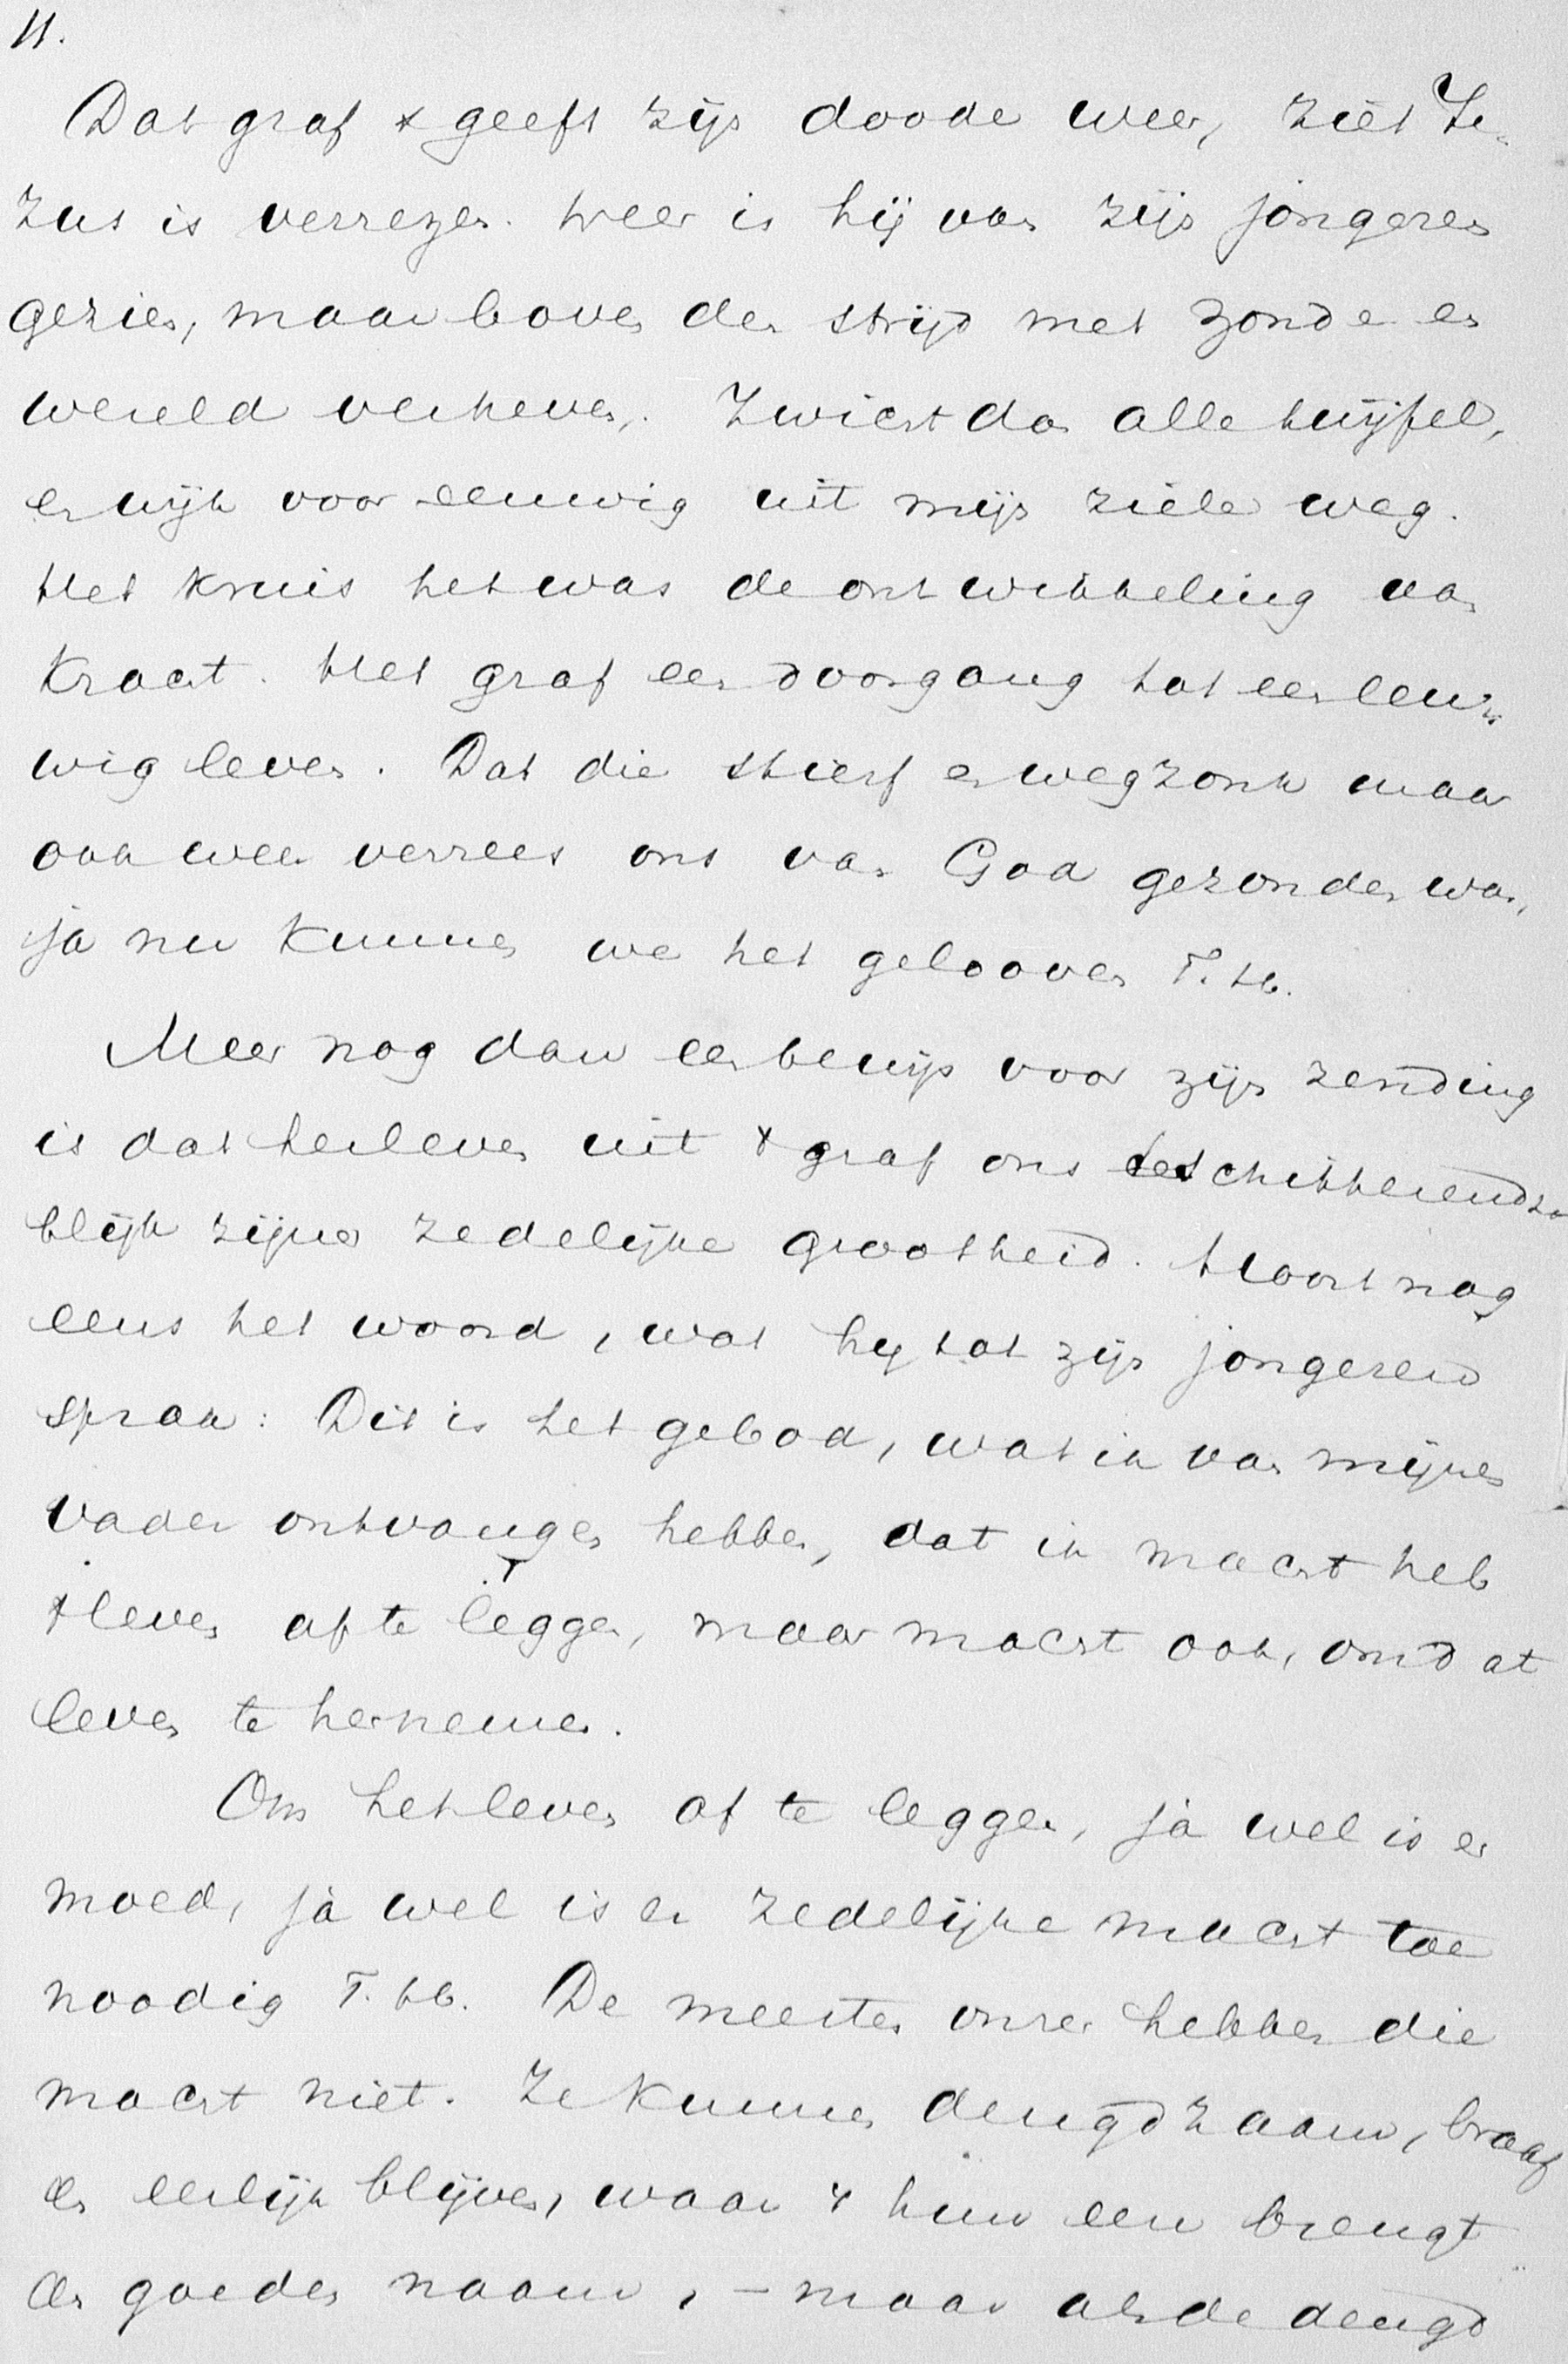 11.
Dat graf geeft zijn doode weer, ziet Je-
zus is verrezen. Weer is hij van zijn jongeren
gezien, maar boven den strijd met zonde en
wereld verheven. Zwicht dan alle twijfel,
en wijk voor eeuwig uit mijn ziele weg.
Het kruis het was de ontwikkeling van
kracht. Het graf een doorgang tot een eeu-
wig leven. Dat die stierf en wegzonk maar
ook weer verrees ons van God gezonden was,
ja nu kunnen we het gelooven T. H.
Meer nog dan een bewijs voor zijn zending
is dat herleven uit 't graf ons het schitterendste
blijk zijner zedelijke grootheid. Hoort nog
eens het woord, wat hij tot zijn jongeren
sprak: Dit is het gebod, wat ik van mijnen
vader ontvangen hebbe, dat ik macht heb
't leven af te leggen, maar macht ook, om dat
leven te hernemen.
Om het leven af te leggen, ja wel is er
moed, ja wel is er zedelijke macht toe
noodig T. H. De meesten onzer hebben die
macht niet. Ze kunnen deugdzaam, braaf
en eerlijk blijven, waar 't hun eer brengt
en goeden naam, - maar als de deugd